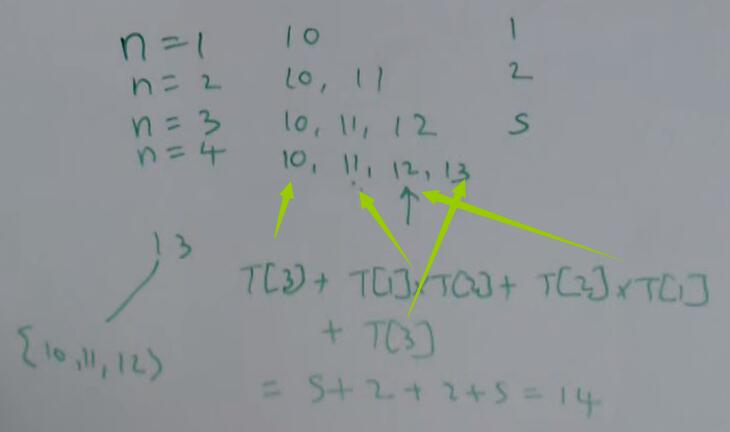 n = 1 10 1
n = 2 10, 11 2
n = 3 10, 11, 12 5
n = 4 10, 11, 12, 13
13
{10, 11, 12}
T[3] + T[1] x T[2] + T[2] x T[1]
+ T[3]
= 5 + 2 + 2 + 5 = 14